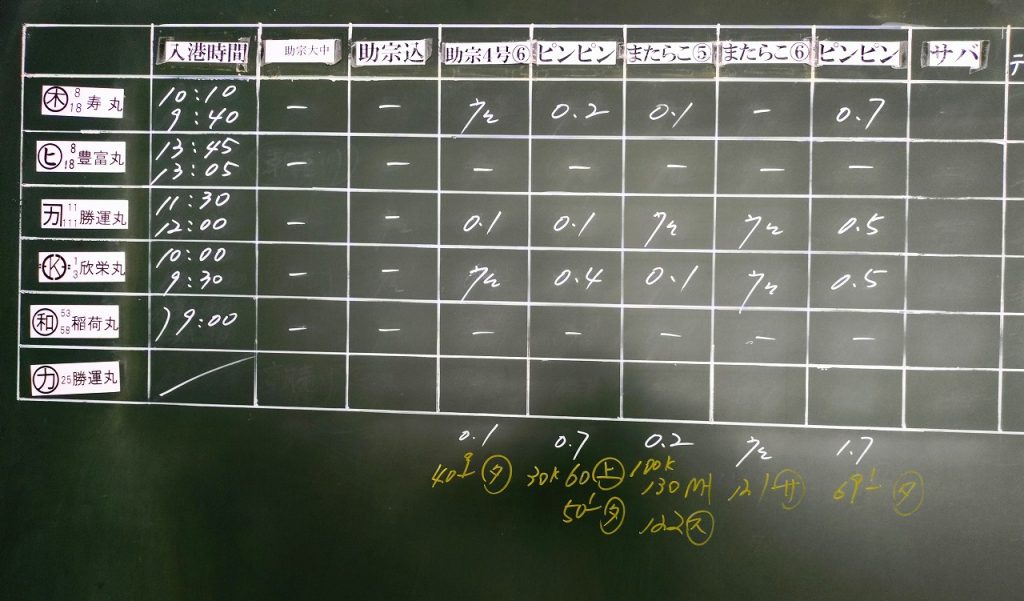 入港時間 助宗大中 助宗込 助宗4号⑥ ピンピン またらこ⑤ またらこ⑥ ピンピン サバ テ
木 8 18 寿丸 10:10 9:40 - - ケ 0.2 0.1 - 0.7
ヒ 8 18 豊富丸 13:45 13:05 - - - - - - -
カ 11 111 勝運丸 11:30 12:00 - - 0.1 0.1 ケ ケ 0.5
K 1 3 欣栄丸 10:00 9:30 - - ケ 0.4 0.1 ケ 0.5
和 53 58 稲荷丸 )9:00 - - - - - - -
カ 25 勝運丸
0.1 0.7 0.2 ケ 1.7
40 タ 30K 60 ヒ 100K 130 121 サ 69 タ
50 タ 122 ス